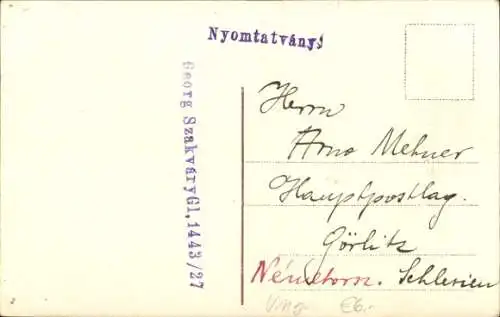 Nyomtatvány!
Georg Szakváry Gl. 1443/27
Herrn
Arno Mehner
Hauptpostlag.
Görlitz
Németorsz. Schlesien
Ung. £6.-